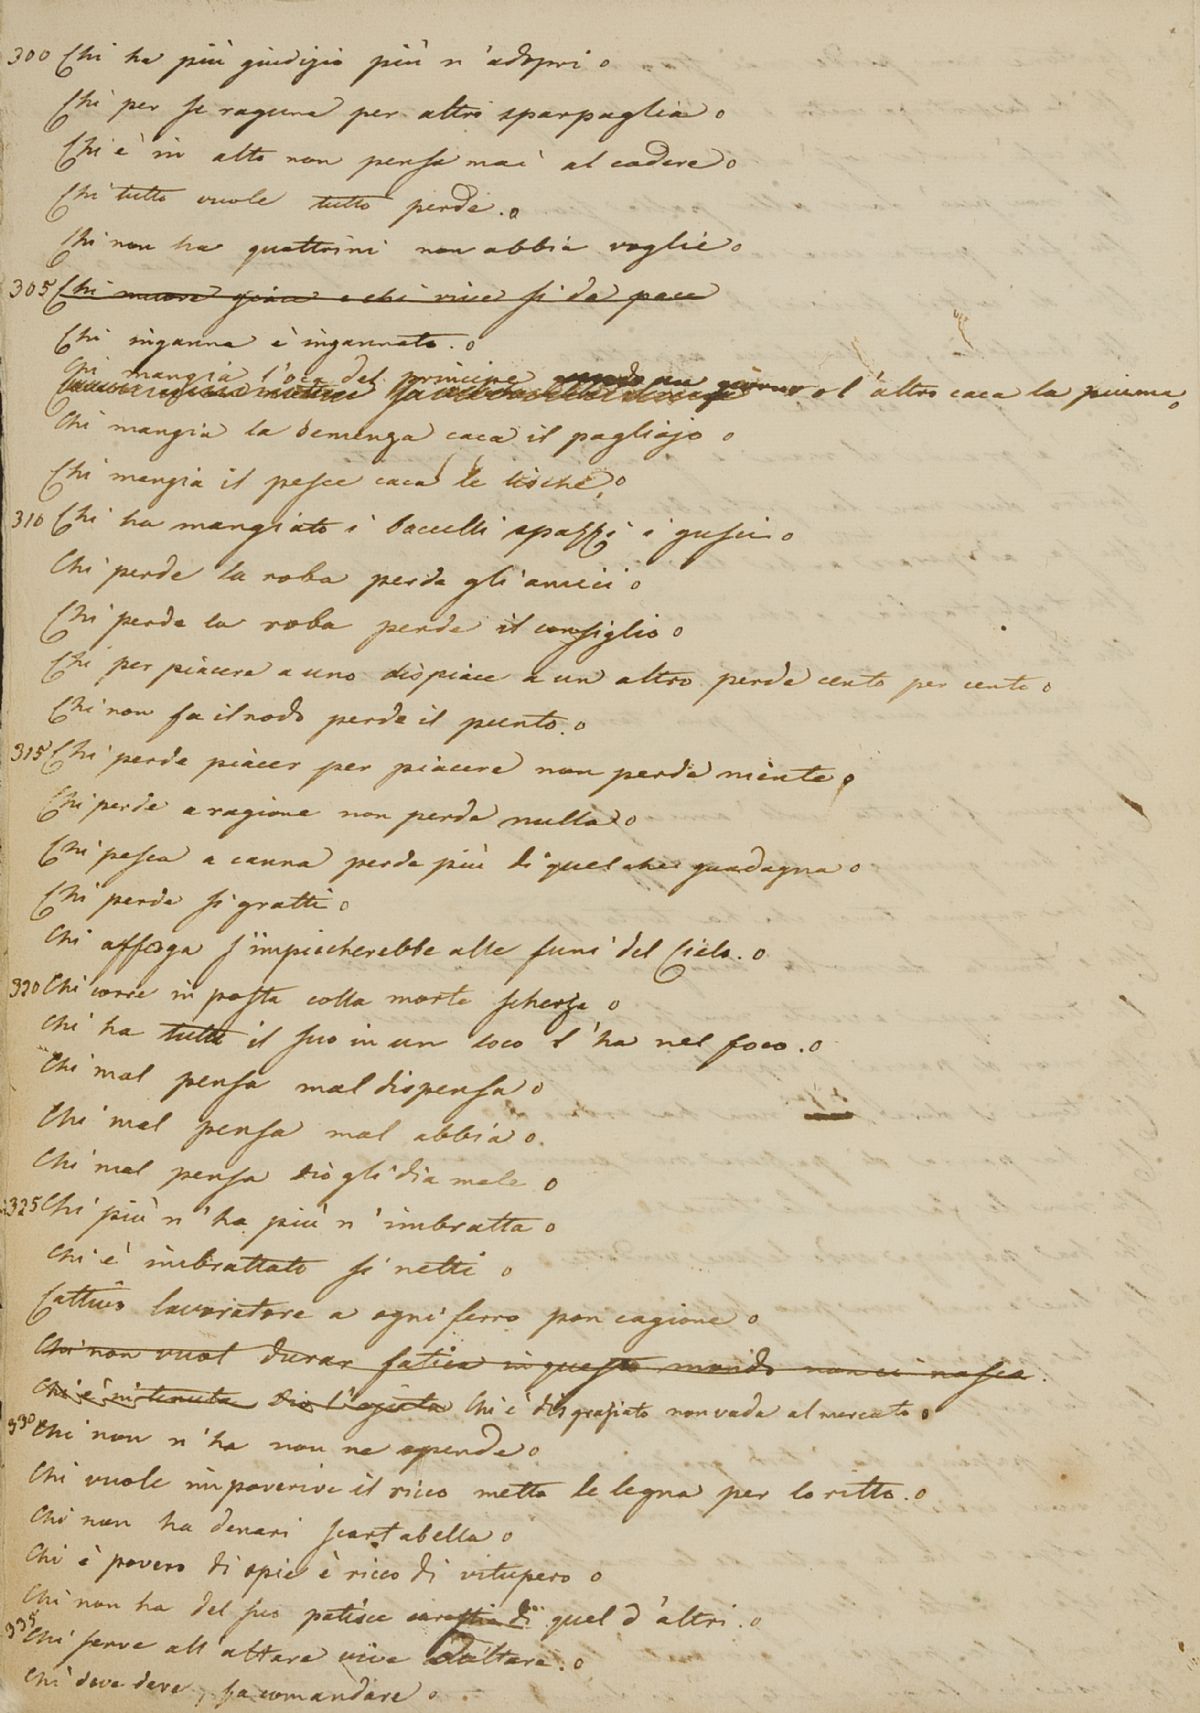 300 Chi ha più giudizio più n'adopri o
Chi per se raguna per altri sparpaglia o
Chi è in alto non pensa mai al cadere o
Chi tutto vuole tutto perde. o
Chi non ha quattrini non abbia voglie o
305 Chi muore giace e chi vive si da pace
Chi inganna è ingannato. o
Chi mangia l'oca del principe
o l'altro caca la piuma o
Chi mangia la semenza caca il pagliajo o
Chi mangia il pesce caca le lische, o
310 Chi ha mangiato i baccelli spazzi i gusci o
Chi perde la roba perde gli amici o
Chi perde la roba perde il consiglio o
Chi per piacere a uno dispiace a un altro perde cento per cento o
Chi non fa il nodo perde il punto. o
315 Chi perde piacer per piacere non perde niente o
Chi perde a ragione non perde nulla o
Chi pesca a canna perde più di quel che guadagna o
Chi perde si gratti o
Chi affoga s'impiccherebbe alle funi del Cielo. o
320 Chi corre in posta colla morte scherza o
Chi ha tutto il suo in un loco l'ha nel foco. o
Chi mal pensa mal dispensa o
Chi mal pensa mal abbia o.
Chi mal pensa Dio gli dia male o
325 Chi più n'ha più n'imbratta o
Chi è imbrattato si netti o
Cattivo lavoratore a ogni ferro pon cagione o
Chi non vuol durar fatica in questo mondo non ci nasca.
Chi è in tenuta Dio l'ajuta Chi è disgraziato non vada al mercato o
330 Chi non n'ha non ne spende o
Chi vuole impoverire il ricco metta le legna per lo ritto. o
Chi non ha denari scartabella o
Chi è povero di spie è ricco di vitupero o
Chi non ha del suo patisce carestia di quel d'altri. o
335 Chi serve all'altare vive d'altare. o
Chi deve dere, fa comandare o